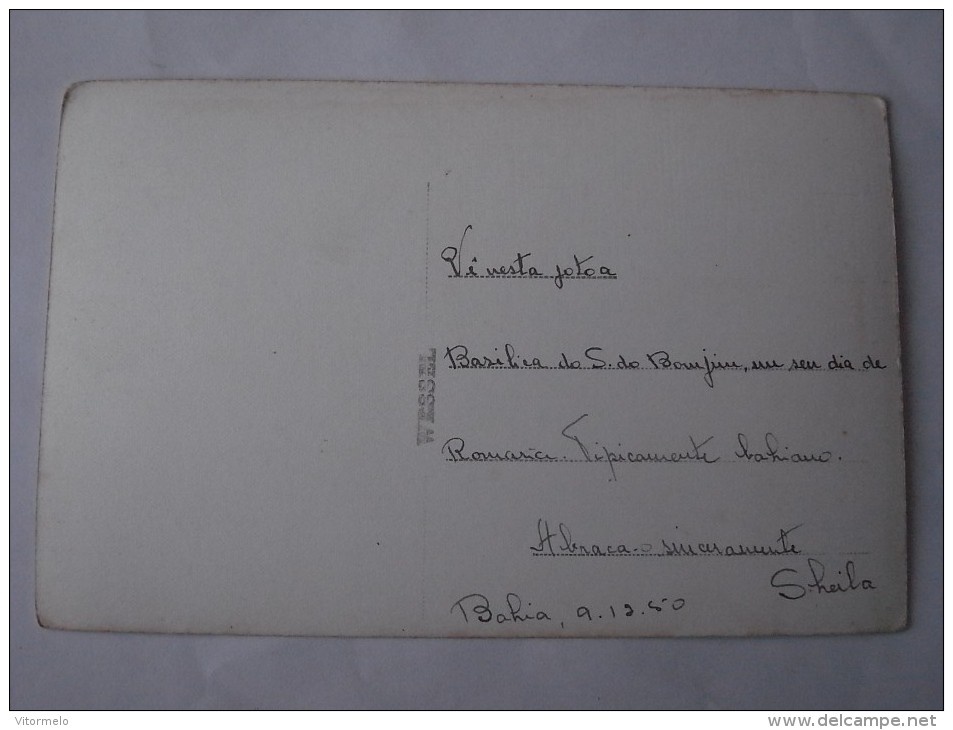 Vê nesta fotoa
Basilica do S. do Bomfim, em seu dia de
Romaria. Tipicamente bahiano.
Abraça-o sinceramente
Sheila
Bahia, 9.12.50
Vitormelo
www.delcampe.net